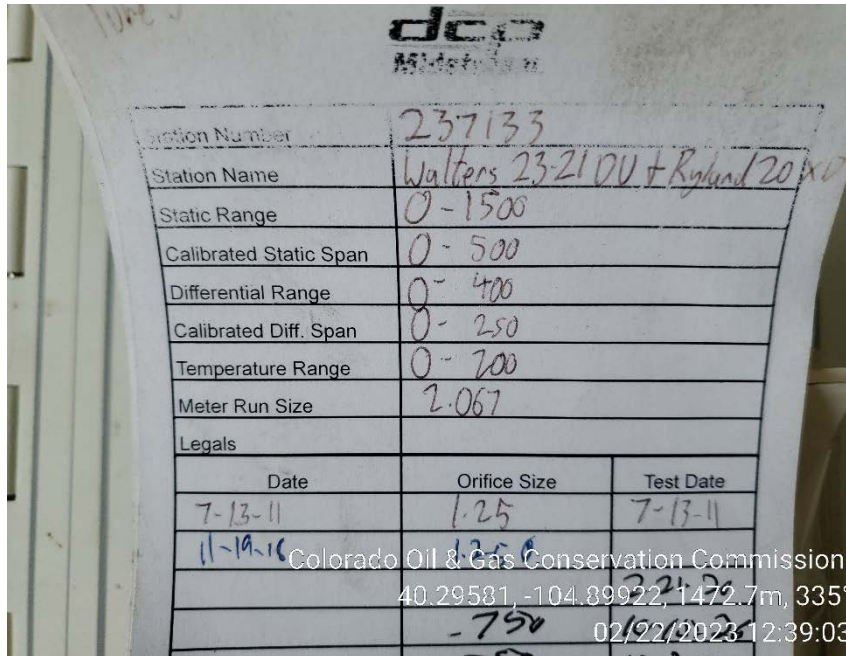 dcp
Midstream
Station Number 237133
Station Name Walters 23-21 DU + Ryland 20 XD
Static Range 0-1500
Calibrated Static Span 0- 500
Differential Range 0- 400
Calibrated Diff. Span 0- 250
Temperature Range 0- 200
Meter Run Size 2.067
Legals
Date Orifice Size Test Date
7-13-11 1.25 7-13-11
11-19-18
Colorado Oil & Gas Conservation Commission
40.29581, -104.89922, 1472.7m, 335°
.750
02/22/2023 12:39:03